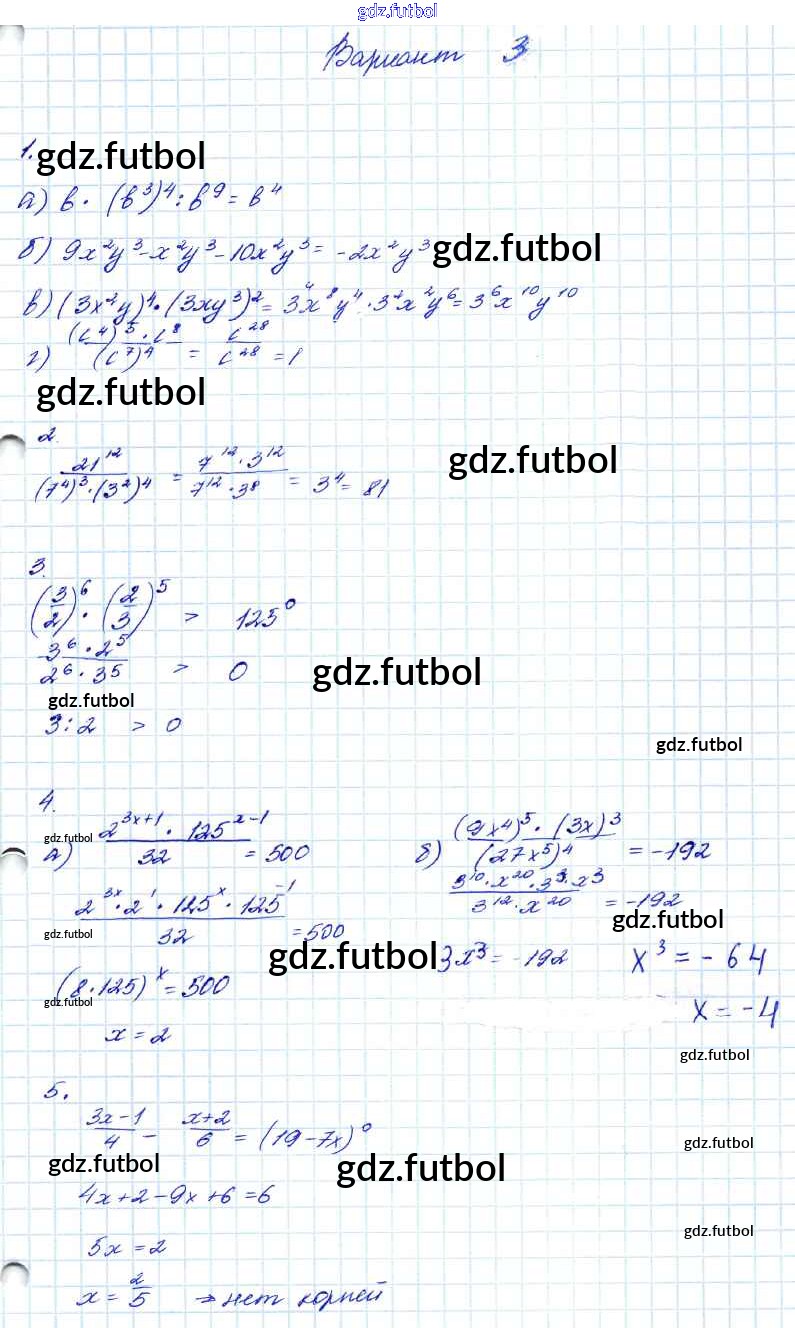 gdz.futbol
Вариант 3
1. gdz.futbol
а) b · (b³)⁴ : b⁹ = b⁴
б) 9x²y³ - x²y³ - 10x²y³ = -2x²y³ gdz.futbol
в) (3x²y)⁴ · (3xy³)² = 3⁴x⁸y⁴ · 3²x²y⁶ = 3⁶x¹⁰y¹⁰
г) (c⁴)⁵ · c⁸ / (c⁷)⁴ = c²⁸ / c²⁸ = 1
gdz.futbol
2.
21¹² / (7⁴)³ · (3²)⁴ = 7¹² · 3¹² / 7¹² · 3⁸ = 3⁴ = 81 gdz.futbol
3.
(3/2)⁶ · (2/3)⁵ > 125⁰
3⁶ · 2⁵ / 2⁶ · 3⁵ > 0 gdz.futbol
gdz.futbol
3 : 2 > 0
gdz.futbol
4.
gdz.futbol
а) 2^(3x+1) · 125^(x-1) / 32 = 500
2^(3x) · 2¹ · 125^x · 125^(-1) / 32 = 500
gdz.futbol
gdz.futbol
(8·125)^x = 500
gdz.futbol
x = 2
б) (9x⁴)⁵ · (3x)³ / (27x⁵)⁴ = -192
3¹⁰ · x²⁰ · 3³ · x³ / 3¹² · x²⁰ = -192
gdz.futbol
3x³ = -192 x³ = -64
x = -4
gdz.futbol
5.
3x-1 / 4 - x+2 / 6 = (19-7x)⁰
gdz.futbol
gdz.futbol gdz.futbol
4x+2-9x+6 = 6
gdz.futbol
5x = 2
x = 2/5 → нет корней